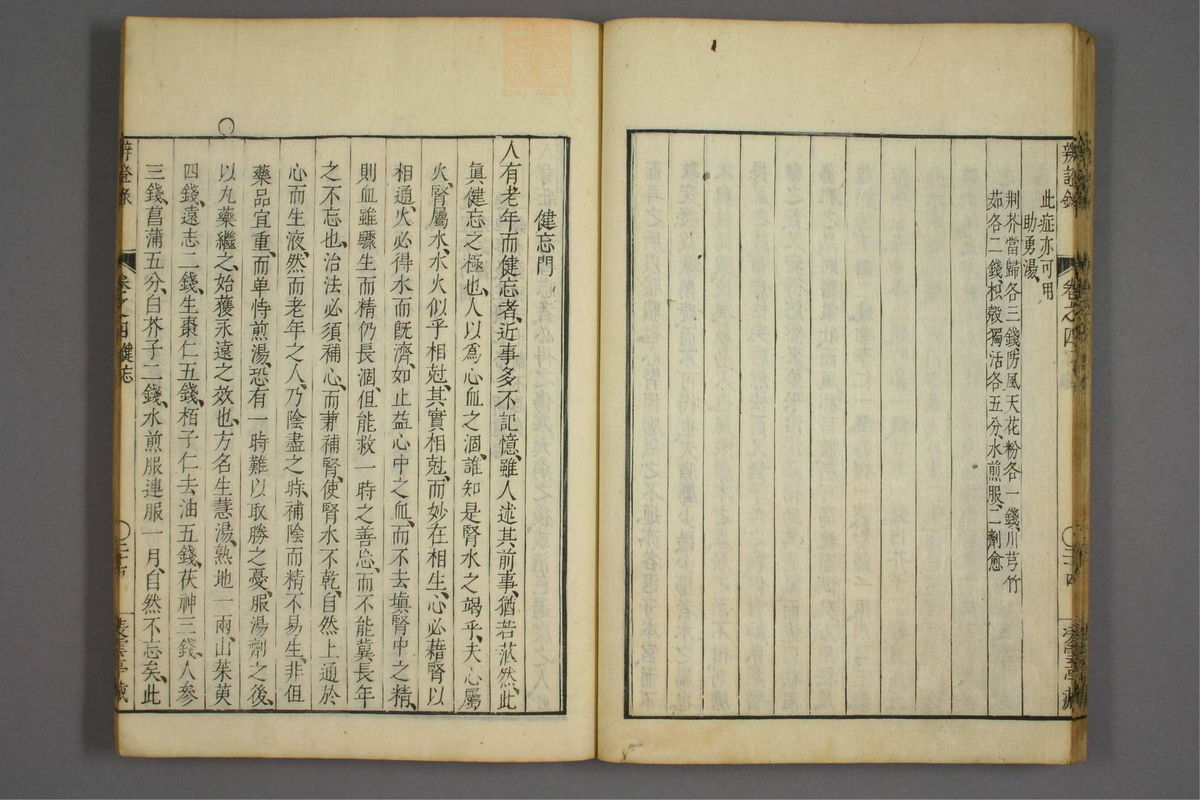 辨證錄
卷之四
此症亦可用
助勇湯
荆芥當歸各三錢、防風天花粉各一錢、川芎竹
茹各二錢、枳殼獨活各五分、水煎服、二劑愈
健忘門
人有老年而健忘者、近事多不記憶、雖人述其前事、猶若茫然、此
眞健忘之極也、人以爲心血之涸、誰知是腎水之竭乎、夫心屬
火、腎屬水、水火似乎相尅、其實相尅、而妙在相生、心必藉腎以
相通、火必得水而旣濟、如止益心中之血、而不去塡腎中之精、
則血雖驟生而精仍長涸、但能救一時之善忘、而不能冀長年
之不忘也、治法必須補心、而兼補腎、使腎水不乾、自然上通於
心而生液、然而老年之人、乃陰盡之時、補陰而精不易生、非但
藥品宜重、而單恃煎湯、恐有一時難以取勝之憂、服湯劑之後、
以丸藥繼之、始獲永遠之效也、方名生慧湯、熟地一兩、山茱萸
四錢、遠志二錢、生棗仁五錢、栢子仁去油五錢、茯神三錢、人參
三錢、菖蒲五分、白芥子二錢、水煎服、連服一月、自然不忘矣、此
辨證錄
卷之四健忘